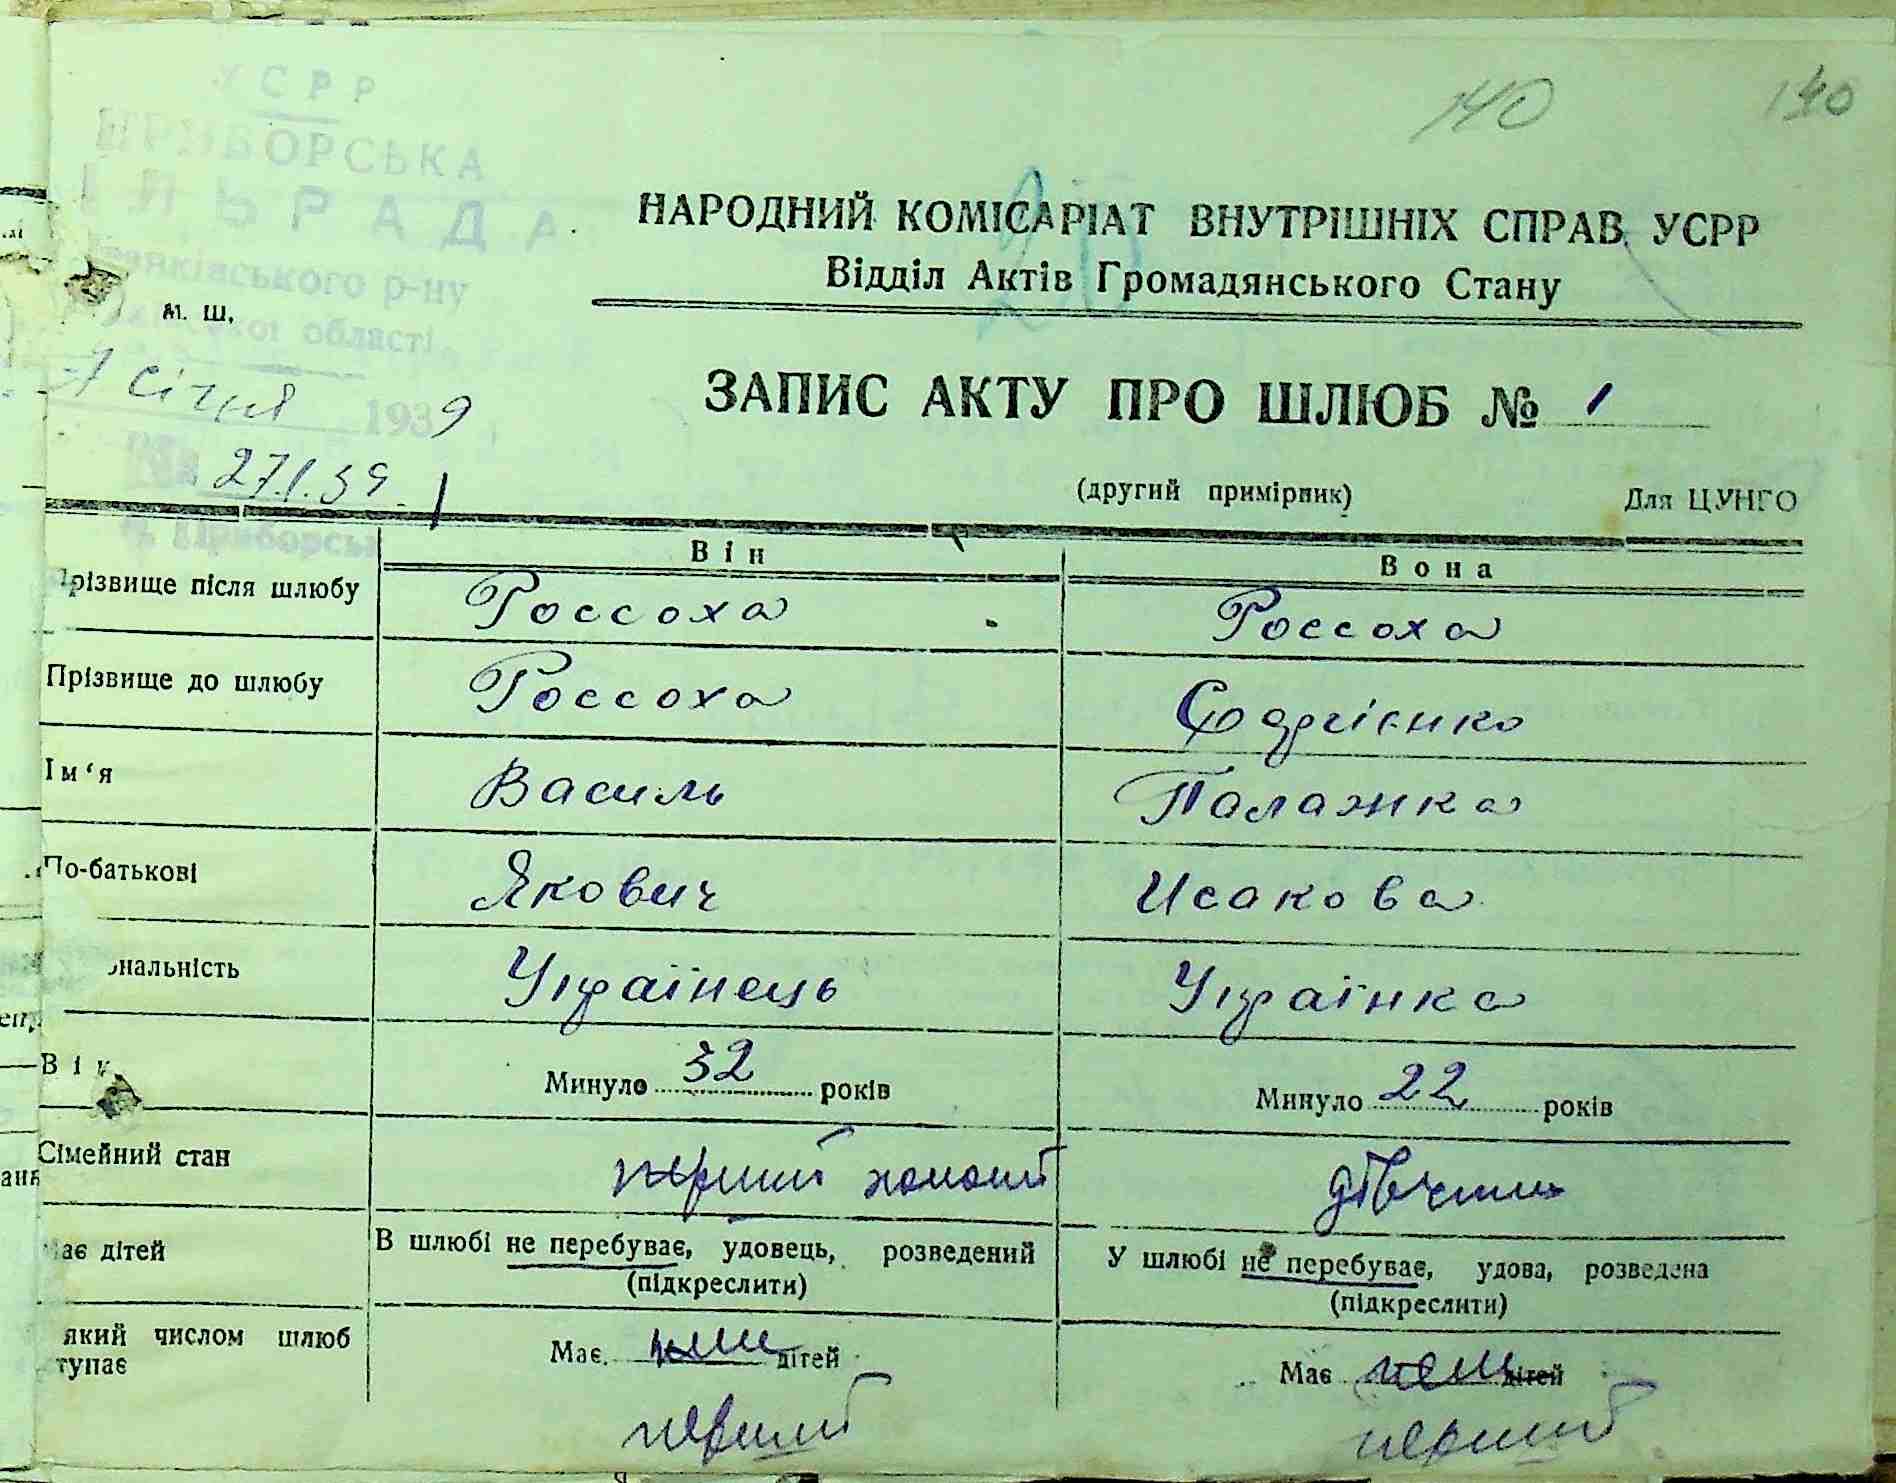 140 140
УСРР
ПРИБОРСЬКА
ІЛЬРАДА
р-ну
області
НАРОДНИЙ КОМІСАРІАТ ВНУТРІШНІХ СПРАВ УСРР
Відділ Актів Громадянського Стану
М. Ш.
7 січня 1939
ЗАПИС АКТУ ПРО ШЛЮБ № 1
№ 27.1.39.
(другий примірник) Для ЦУНГО
Він Вона
Прізвище після шлюбу Россоха Россоха
Прізвище до шлюбу Россоха
Ім‘я Василь Палажка
По-батькові Якович Исакова
ональність Українець Українка
Вік Минуло 32 років Минуло 22 років
Сімейний стан перший дівчина
Має дітей В шлюбі не перебуває, удовець, розведений У шлюбі не перебуває, удова, розведена
(підкреслити) (підкреслити)
який числом шлюб Має дітей Має дітей
тупає
перший перший